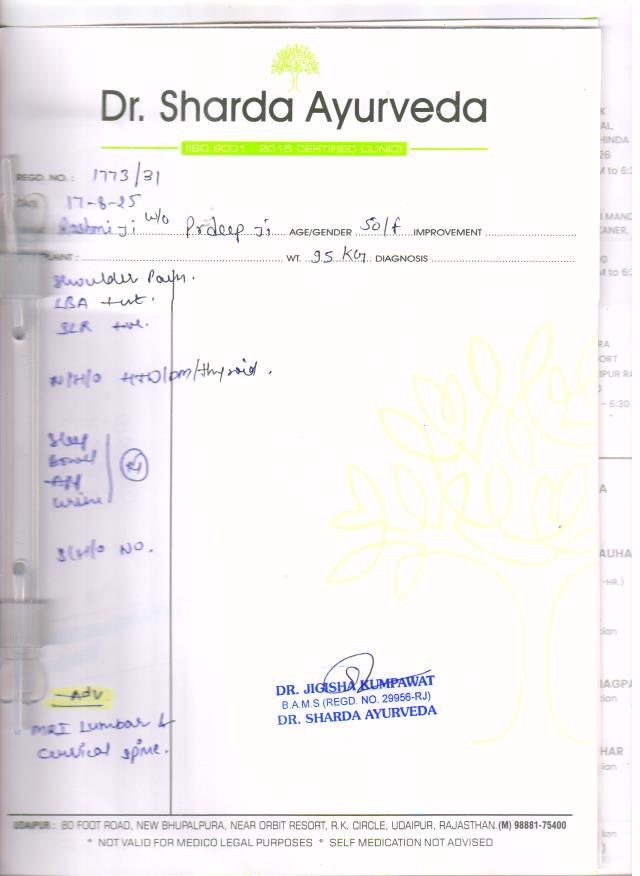 Dr. Sharda Ayurveda
(ISO 9001 : 2015 CERTIFIED CLINIC)
REGD. NO. : 1773/31
DATE 17-8-25
Rashmi ji w/o Prdeep ji AGE/GENDER 50/f IMPROVEMENT
LAINT : WT. 95 KG DIAGNOSIS
Shoulder Pain.
LBA +ut.
SLR +ve.
N/H/O HTN/DM/thyroid.
Sleep
Bowel
App
Urine
S/H/O NO.
Adv
MRI Lumbar &
Cervical Spine.
DR. JIGISHA KUMPAWAT
B.A.M.S (REGD. NO. 29956-RJ)
DR. SHARDA AYURVEDA
UDAIPUR : 80 FOOT ROAD, NEW BHUPALPURA, NEAR ORBIT RESORT, R.K. CIRCLE, UDAIPUR, RAJASTHAN.(M) 98881-75400
* NOT VALID FOR MEDICO LEGAL PURPOSES * SELF MEDICATION NOT ADVISED